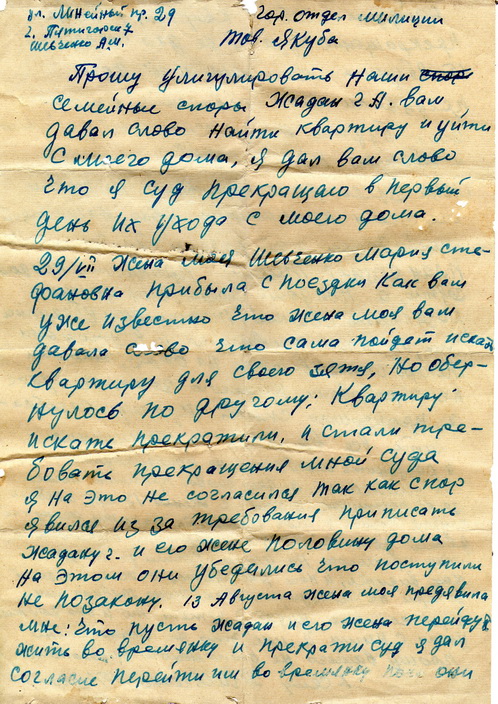 ул. Линейной пр. 29
г. Пятигорск
Шевченко А.М.
гор. отдел милиции
тов. Якуба
Прошу улигулировать наши спор
семейные споры Жадан г А. вам
давал слово найти квартиру и уйти
с моего дома, я дал вам слово
что я суд прекращаю в первый
день их ухода с моего дома.
29/VII жена моя Шевченко Мария Сте-
фановна прибыла с поездки как вам
уже известно что жена моя вам
давала слово что сама пойдет искать
квартиру для своего зятя, но обер-
нулось по другому; квартиру
искать прекратили, и стали тре-
бовать прекращения мной суда
я на это не согласился так как спор
явился из за требования приписать
Жадану г. и его жене половину дома
на этом они убедились что поступили
не позакону. 13 Августа жена моя предявила
мне: что пусть Жадан и его жена перейдут
жить во времянку и прекрати суд я дал
согласие перейти им во времянку они